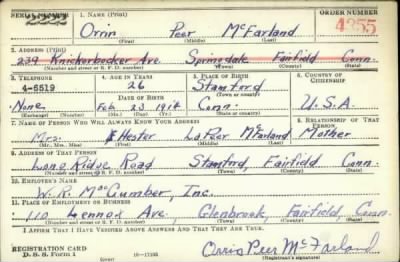 SERIAL NUMBER 1. NAME (Print) ORDER NUMBER
Orrin Peer McFarland 4255
(First) (Middle) (Last)
2. ADDRESS (Print)
239 Knickerbocker Ave Springdale Fairfield Conn.
(Number and street or R. F. D. number) (Town) (County) (State)
3. TELEPHONE 4. AGE IN YEARS 5. PLACE OF BIRTH 6. COUNTRY OF CITIZENSHIP
4-6519 26 Stamford
DATE OF BIRTH (Town or county)
None Feb 23 1914 Conn. U.S.A.
(Exchange) (Number) (Mo.) (Day) (Yr.) (State or country)
7. NAME OF PERSON WHO WILL ALWAYS KNOW YOUR ADDRESS 8. RELATIONSHIP OF THAT PERSON
Mrs. Hester McFarland Mother
(Mr., Mrs., Miss) (First) (Middle) (Last)
9. ADDRESS OF THAT PERSON
Long Ridge Road Stamford, Fairfield Conn.
(Number and street or R. F. D. number) (Town) (County) (State)
10. EMPLOYER'S NAME
W. R. MacCumber, Inc.
11. PLACE OF EMPLOYMENT OR BUSINESS
110 Lennox Ave. Glenbrook, Fairfield, Conn.
(Number and street or R. F. D. number) (Town) (County) (State)
I AFFIRM THAT I HAVE VERIFIED ABOVE ANSWERS AND THAT THEY ARE TRUE.
REGISTRATION CARD
D. S. S. Form 1 (over) 16-17105 Orrin Peer McFarland
(Registrant's signature)